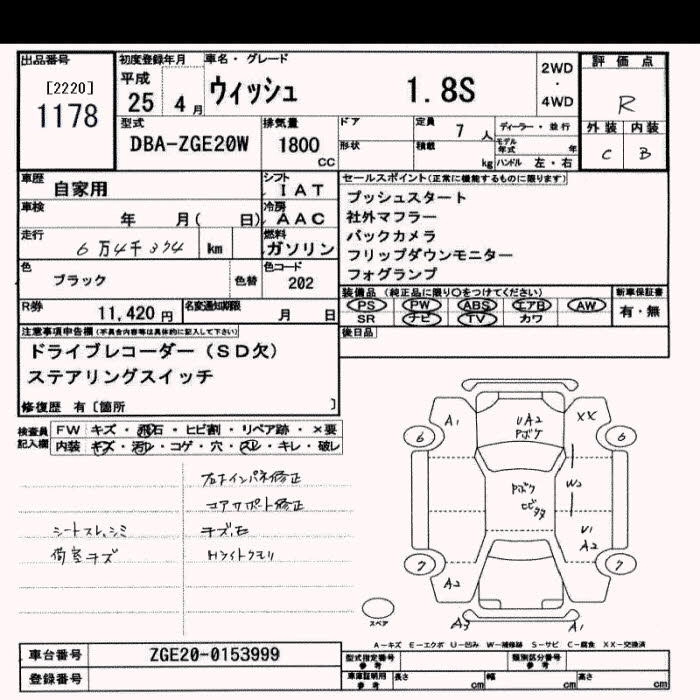 出品番号
[2220]
1178
初度登録年月
平成
25 4 月
車名・グレード
ウィッシュ 1.8S
2WD
・
4WD
評価点
R
外装 内装
C B
型式
DBA-ZGE20W
排気量
1800
CC
ドア
形状
定員 7 人
積載 kg
ディーラー・並行
モデル年式 年
ハンドル 左・右
車歴 自家用
シフト IAT
車検 年 月( 日)
冷房 AAC
走行 6万4千324 km
燃料 ガソリン
色 ブラック 色替
色コード 202
R券 11,420 円
名変通知期限 月 日
セールスポイント(正常に機能するものに限ります)
プッシュスタート
社外マフラー
バックカメラ
フリップダウンモニター
フォグランプ
装備品 (純正品に限り○をつけてください)
PS PW ABS エアB AW
SR ナビ TV カワ
新車保証書
有・無
後日品
注意事項申告欄(不具合内容等は具体的に記入して下さい)
ドライブレコーダー(SD欠)
ステアリングスイッチ
修復歴 有[箇所 ]
検査員記入欄
FW キズ・飛石・ヒビ割・リペア跡・×要
内装 キズ・汚レ・コゲ・穴・スレ・キレ・破レ
右インパネ修正
コアサポート修正
シートスレ、シミ
キズ、凹
荷室キズ
Hライトクモリ
A1
UA2
Pボケ
XX
6
6
W2
Pボケ
ヒビ多
U1
A2
7
7
A2
スペア
A3
A1
A-キズ E-エクボ U-凹み W-補修跡 S-サビ C-腐食 XX-交換済
車台番号 ZGE20-0153999
登録番号
型式指定番号 参考
類別区分番号 参考
車庫証明用 参考
長さ cm
幅 cm
高さ cm